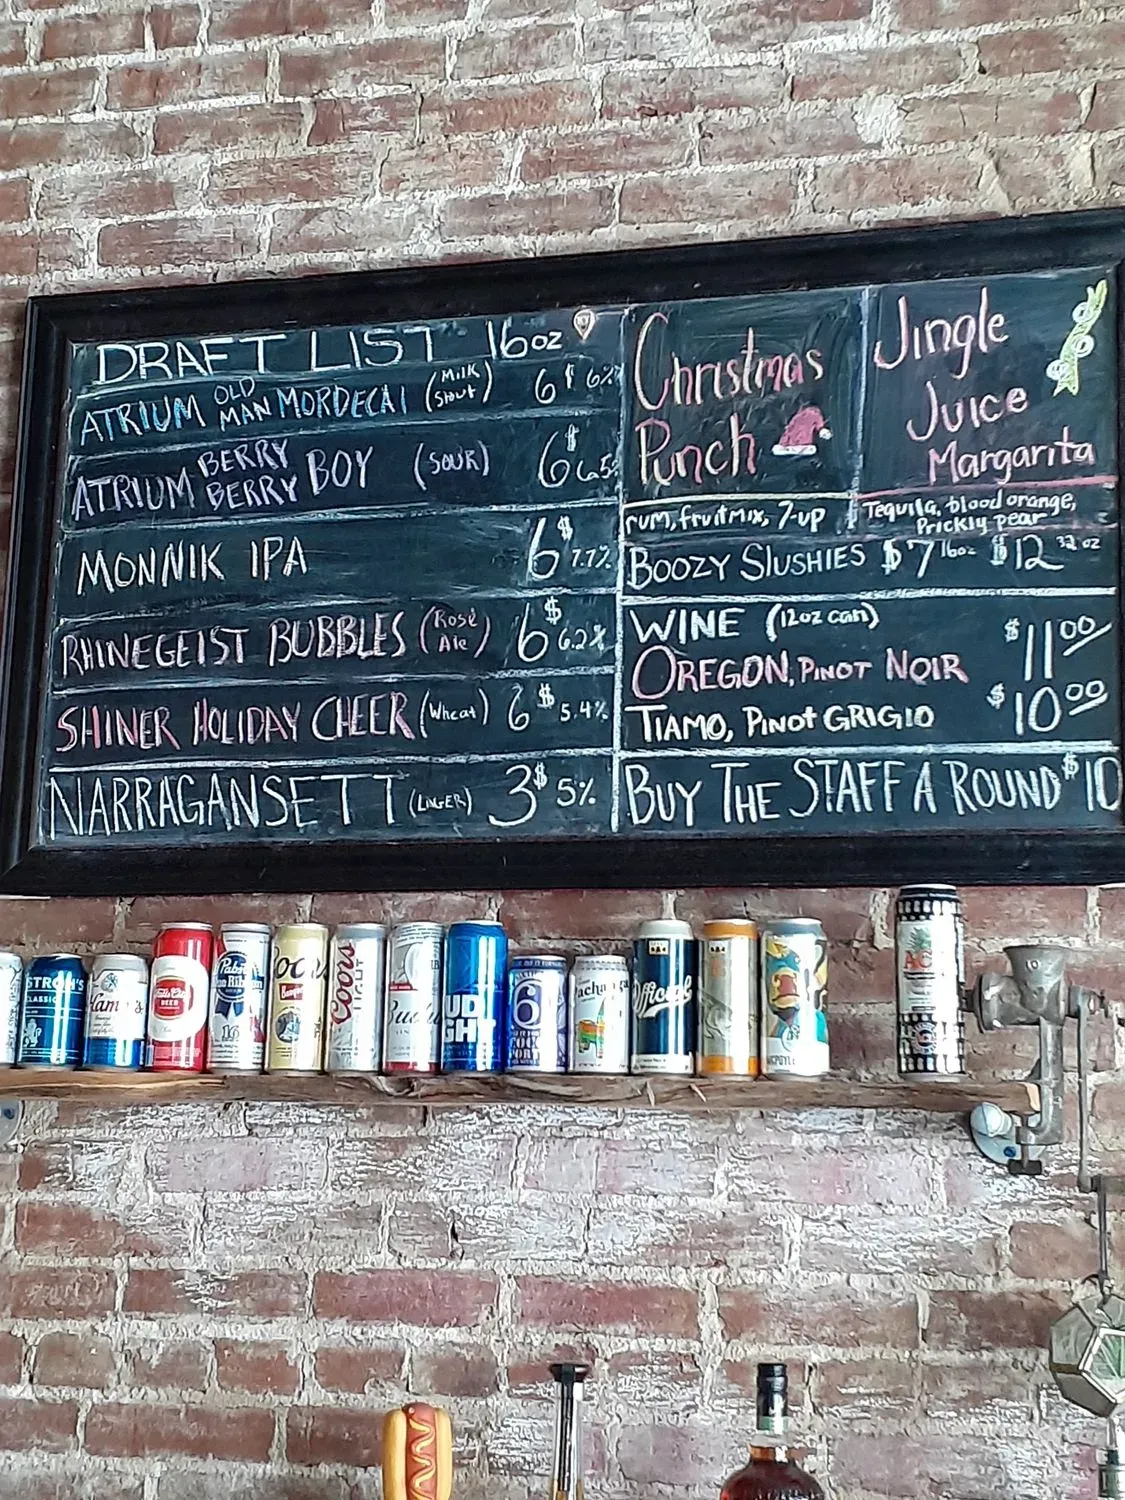 DRAFT LIST 16oz
ATRIUM OLD MAN MORDECAI (Milk Stout) 6$ 6%
ATRIUM BERRY BERRY BOY (SOUR) 6$ 6.5%
MONNIK IPA 6$ 7.7%
RHINEGEIST BUBBLES (Rosé Ale) 6$ 6.2%
SHINER HOLIDAY CHEER (Wheat) 6$ 5.4%
NARRAGANSETT (LAGER) 3$ 5%
Christmas
Punch
rum, fruit mix, 7-up
Jingle
Juice
Margarita
Tequila, blood orange,
Prickly pear
BOOZY SLUSHIES $7 16oz $12 32oz
WINE (12oz can)
OREGON, PINOT NOIR $11.00
TIAMO, PINOT GRIGIO $10.00
BUY THE STAFF A ROUND $10
STROH'S
CLASSIC
Hamm's
BEER
Pabst
Blue Ribbon
Coors
Banquet
Coors
LIGHT
BUD
LIGHT
6
Pachanga
Official